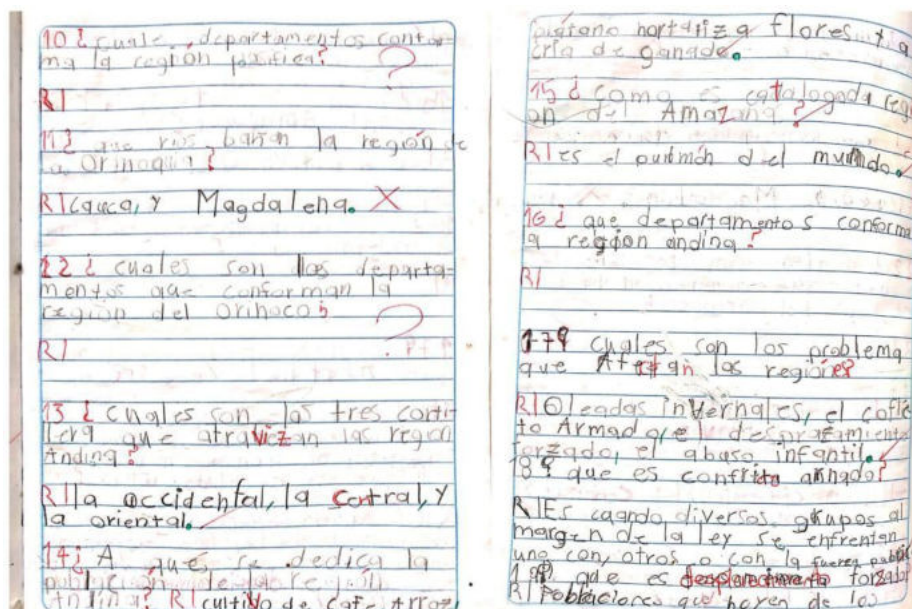 10 ¿ cuale departamentos confor-
ma la región pacifica?
R|
11 ¿ que rios bañan la región de
la Orinoquia?
R| cauca, y Magdalena. X
12 ¿ cuales son los departa-
mentos que conforman la
región del Orinoco?
R|
13 ¿ cuales son las tres cordi-
lera que atraviezan las region
Andina?
R| la occidental, la central, y
la oriental.
14 ¿ A que se dedica la
Andina? R| cultivo de cafe Arroz,
platano hortaliza flores y a
cria de ganado.
15 ¿ como es catalogada regi
on del Amazona?
R| es el pulmón del mundo.
16 ¿ que departamentos conforma
a región andina?
R|
17 ¿ cuales son los problema
que Afectan las regiones?
R| Oleadas invernales, el confli
to Armado, el desplasamiento
forzado, el abuso infantil.
18 ¿ que es confrito armado?
R| Es cuando diversos grupos al
margen de la ley se enfrentan
uno con otros o con la fuerza public
19 ¿ que es desplazamiento forzado
R| Poblaciones que huyen de los